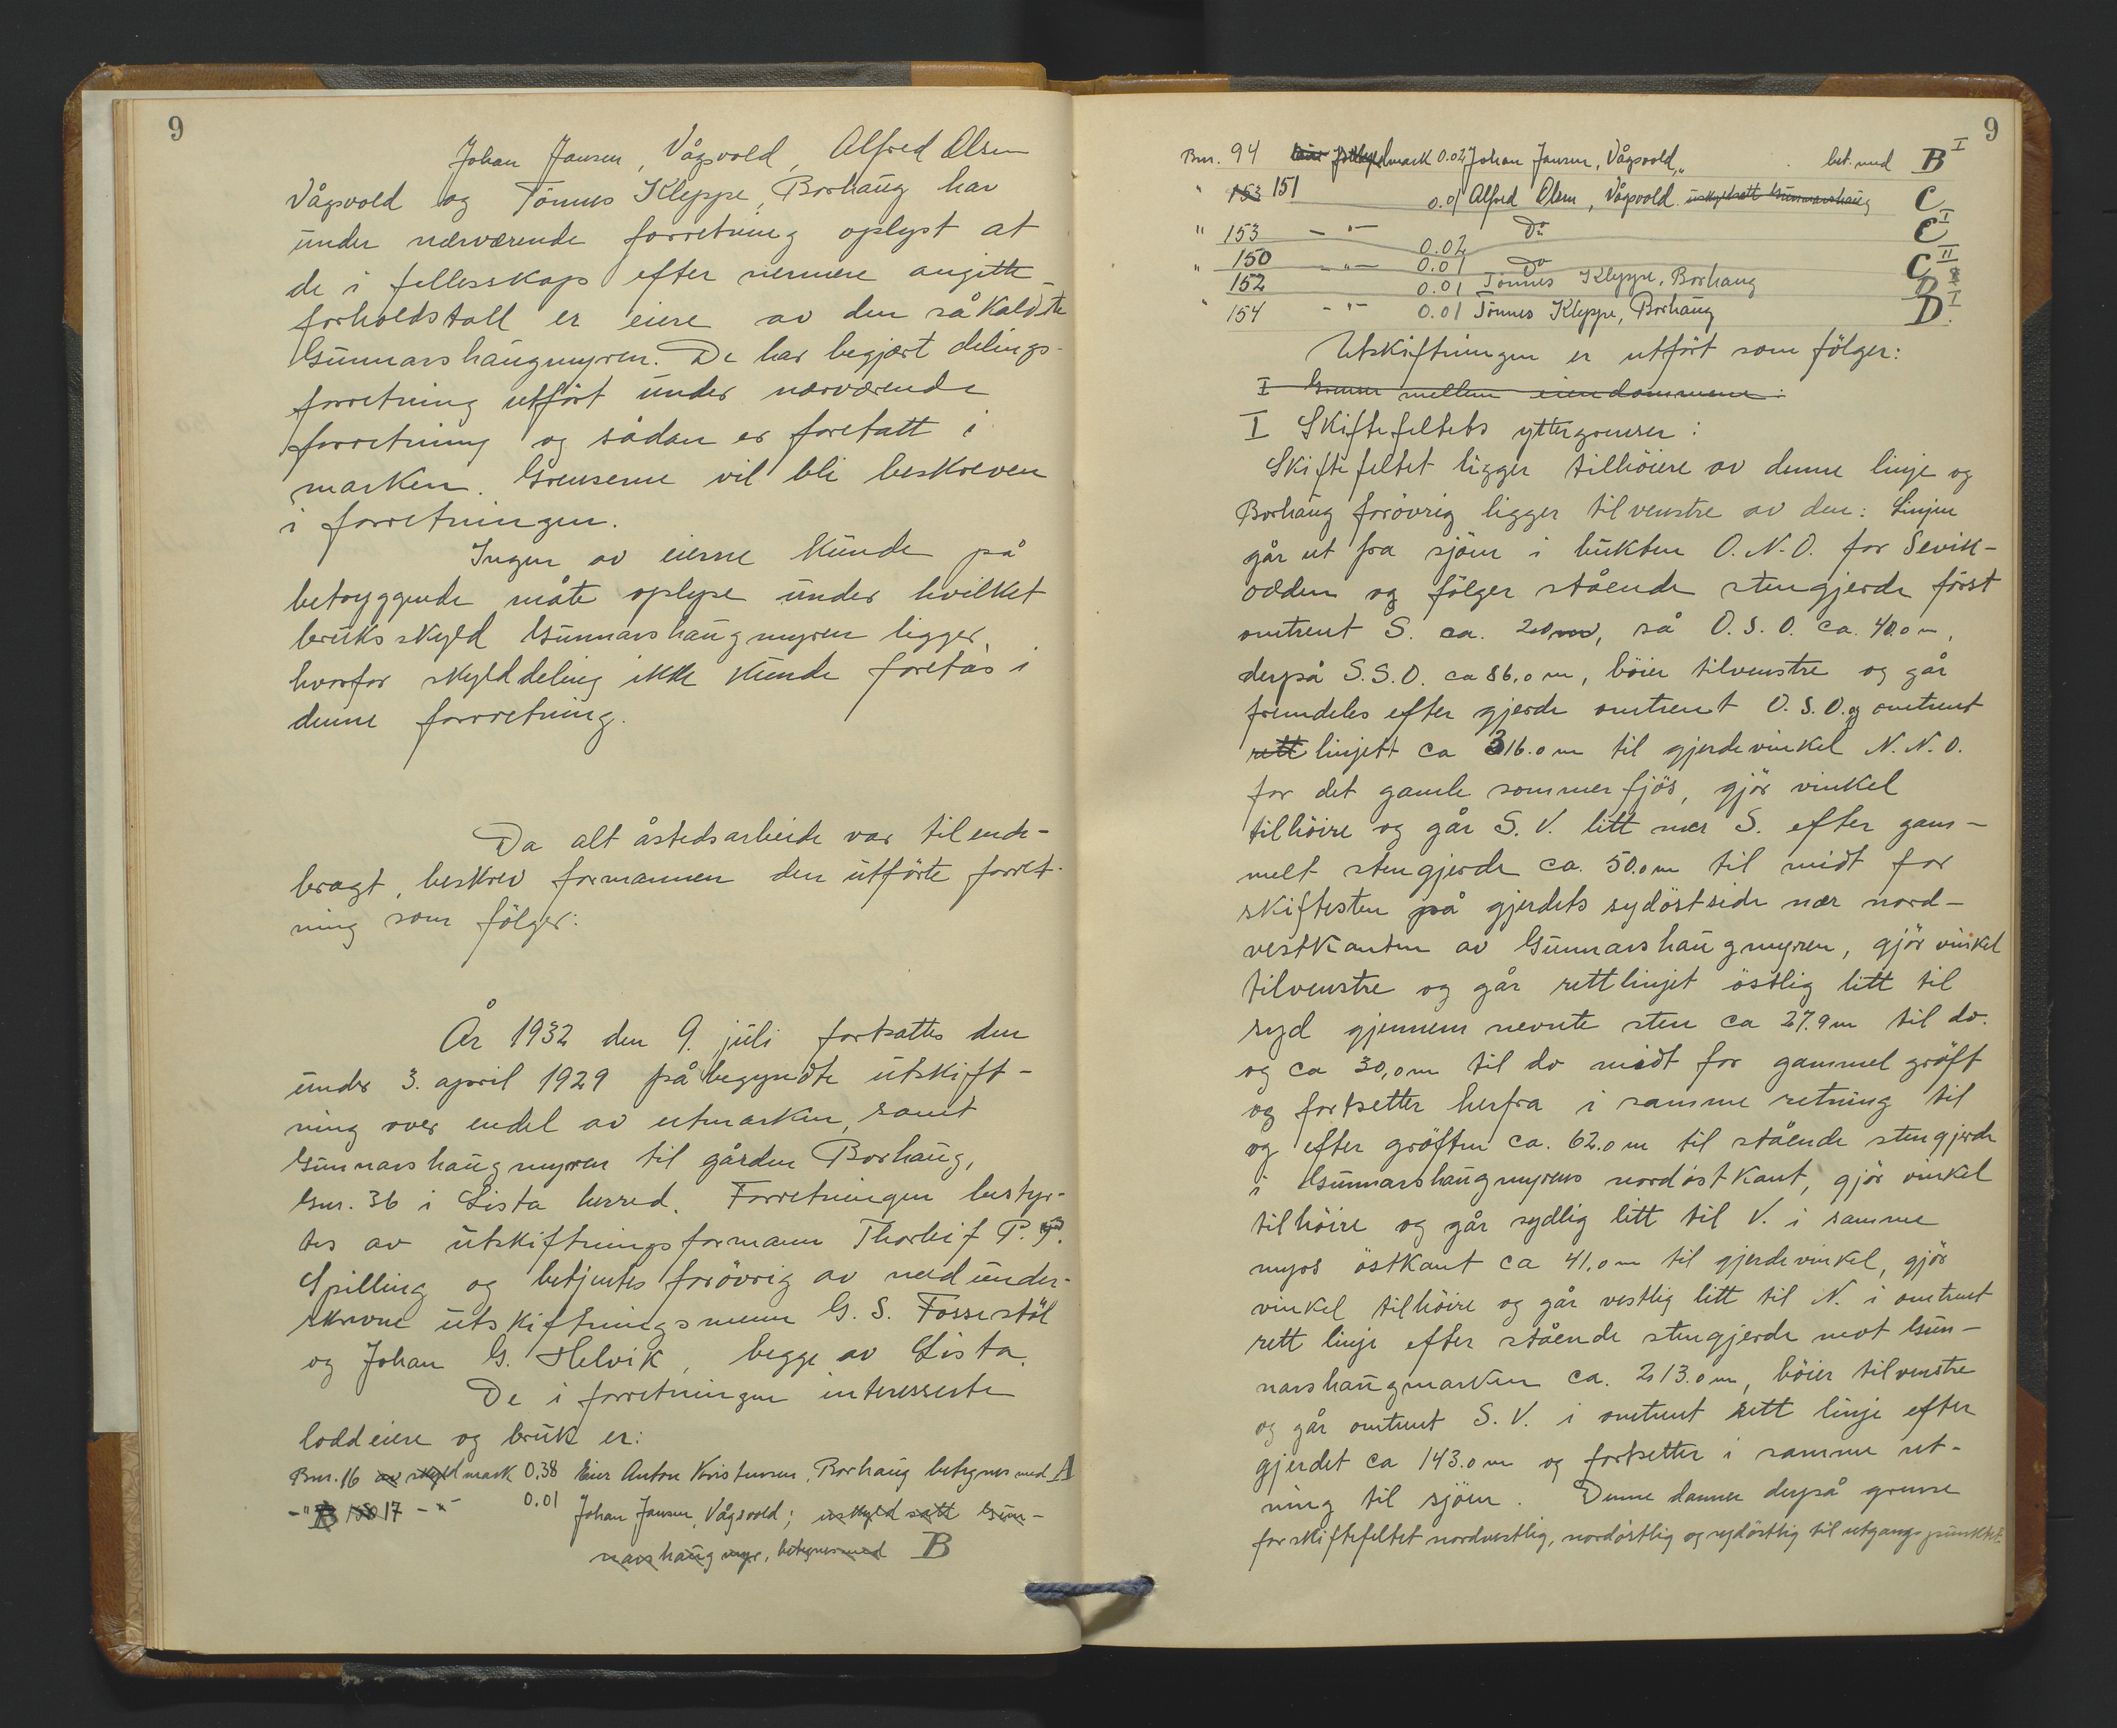 9
Johan Jansen, Vågsvold, Alfred Olsen
Vågsvold og Tönnes Kleppe, Borhaug har
under nærværende forretning oplyst at
de i fellesskap efter nermere angitte
forholdstall er eiere av den såkaldte
Gunnarshaugmyren. De har begjært delings-
forretning utfört under nærværende
forretning og sådan er foretatt i
marken. Grensene vil bli beskreven
i forretningen.
Ingen av eierne kunde på
betryggende måte oplyse under hvilket
bruks skyld Gunnarshaugmyren ligger,
hvorfor skylddeling ikke kunde foretas i
denne forrretning.
Da alt åstedsarbeide var tilende-
bragt, beskrev formannen den utförte forret-
ning som fölger:
År 1932 den 9. juli fortsattes den
under 3. april 1929 påbegyndte utskift-
ning over endel av utmarken, samt
Gunnarshaugmyren til gården Borhaug,
Gnr. 36 i Lista herred. Forretningen bestyr-
tes av utskiftningsformann Thorleif P.
Spilling og betjentes forövrig av nedunder-
skrevne utskiftningsmenn G. S. Fossestöl
og Johan G. Helvik, begge av Lista.
De i forretningen interesserte
loddeiere og bruk er:
Bnr. 16 av skyld mark 0,38 Eier Anton Kristensen, Borhaug betegnes med A
-"- 17 -"- 0.01 Johan Jansen, Vågsvold; uskyldsatt Gun-
narshaugmyr, betegnes med B
9
Bnr. 94 skyldmark 0.02 Johan Jansen, Vågsvold, bet. med B I
" 153 151 0.01 Alfred Olsen, Vågsvold. uskyldsatt Gunnarshaug C
" 153 -"- 0.02 Do C I
" 150 -"- 0.01 Do C II
152 0.01 Tönnes Kleppe, Borhaug D
" 154 -"- 0.01 Tönnes Kleppe, Borhaug D I
Utskiftningen er utfört som fölger:
I Grenser mellem eiendommene:
I Skiftefeltets yttergrenser:
Skiftefeltet ligger tilhöiere av denne linje og
Borhaug forövrig ligger tilvenstre av den: Linjen
går ut fra sjöen i bukten O.N.O. for Sevik-
odden og fölger stående stengjerde först
omtrent S. ca. 20 m, så O.S.O. ca. 40.0 m,
derpå S.S.O. ca 86,0 m, böier tilvenstre og går
fremdeles efter gjerde omtrent O.S.O. og omtrent
rett linjett ca 316.0 m til gjerdevinkel N.N.O.
for det gamle sommerfjös, gjör vinkel
tilhöire og går S.V. litt mer S. efter gam-
melt stengjerde ca. 50.0 m til midt for
skiftesten på gjerdets sydöstside nær nord-
vestkanten av Gunnarshaugmyren, gjör vinkel
tilvenstre og går rettlinjet östlig litt til
syd gjennem nevnte sten ca 27.9 m til do.
og ca 30,0 m til do midt for gammel gröft
og fortsetter herfra i samme retning til
og efter gröften ca. 62.0 m til stående stengjerde
i Gunnarshaugmyrens nordöstkant, gjör vinkel
tilhöire og går sydlig litt til V. i samme
myrs östkant ca 41,0 m til gjerdevinkel, gjör
vinkel tilhöire og går vestlig litt til N. i omtrent
rett linje efter stående stengjerde mot Gun-
narshaugmarken ca. 213.0 m, böier tilvenstre
og går omtrent S.V. i omtrent rett linje efter
gjerdet ca 143.0 m og fortsetter i samme ret-
ning til sjöen. Denne danner derpå grense
for skiftefeltet nordvestlig, nordöstlig og sydöstlig til utgangspunktet.